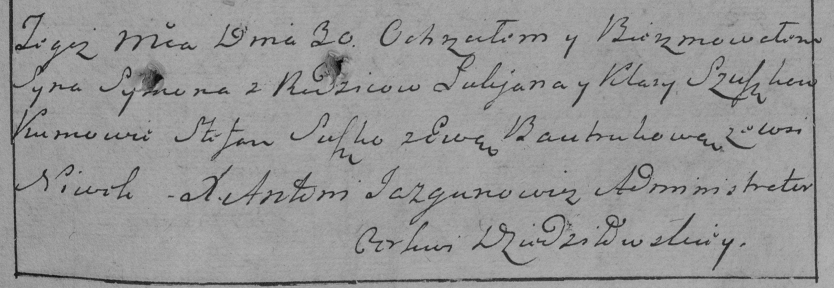 Tegoż Mca Dnia 30. Ochrzciłem y Bierzmowałem
Syna Symona z Rodzicow Lulijana y Klary Szuszkow
Kumowie Stefan Suszko z Ewą Bautrukową zewsi
Niwek - X. Antoni Jazgunowicz Administrator
Cerkwi Dziedziłowskiey.